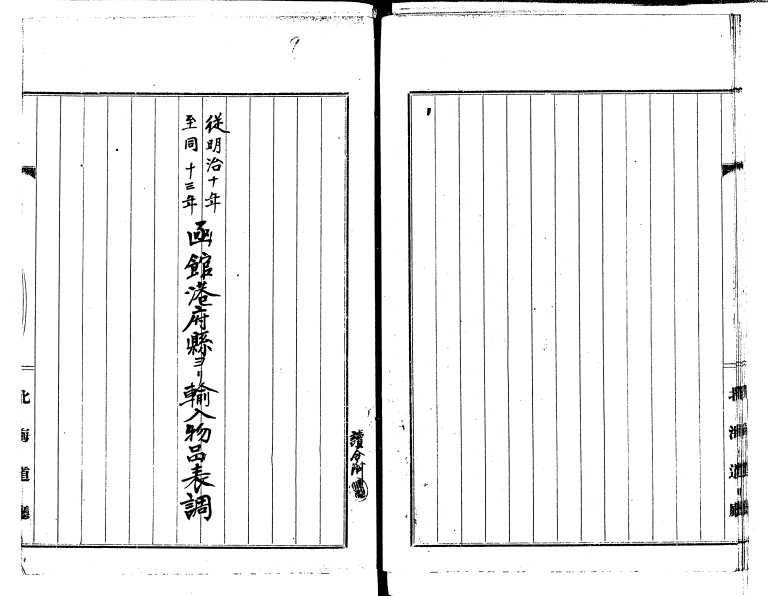 北海道廳
從明治十年
至同十三年
函館港府縣ヨリ輸入物品表調
讀合附
北海道廳